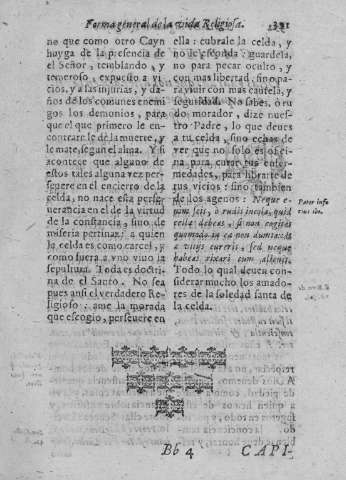 Forma general de la vida Religiosa. 391
no que como otro Cayn
huyga de la presencia de
el Señor, temblando, y
temeroso, expuesto a vi
cios, y a las injurias, y da
ños de los comunes enemi
gos los demonios, para
que el que primero le en
contrare le dè la muerte, y
le mate, segan el alma. Y si
acontece que alguno de
estos tales alguna vez per-
seuere en el encierro de la
celda, no nace esta perse-
uerancia en el de la virtud
de la constancia, sino de
miseria pertinaz: a quien
la celda es como carcel, y
como fuera a vno viuo la
sepultura. Toda es doctri
na de el Santo. No sea
pues ansi el verdadero Re-
ligioso: ame la morada
que escogio, perseuere en
ella: cubrale la celda, y
no le esconda: guardela,
no para pecar oculto, y
con mas libertad, sino pa-
ra viuir con mas cautela, y
seguridad. No sabes, ò ru
do morador, dize nues-
tro Padre, lo que deues
a tu celda, sino echas de
ver que no solo es ofici-
na para curar tus enfer-
medades, para librarte de
tus vicios: sino tambien
de los agenos: Neque e-
nim scis, ò rudis incola, quid
cellæ debeas, si non cogites
quomodo in ea non dumtaxat
a vitijs cureris, sed neque
habeas rixari cum alienis.
Todo lo qual deuen con
siderar mucho los amado-
res de la soledad santa de
la celda.
Bb 4 CAPI-